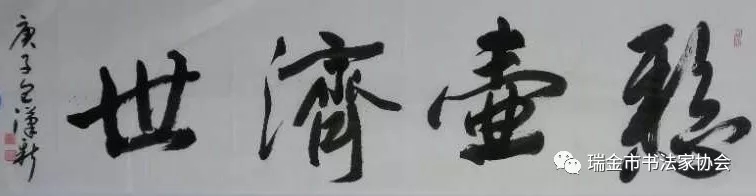 懸壺濟世
庚子漢新
瑞金市书法家协会